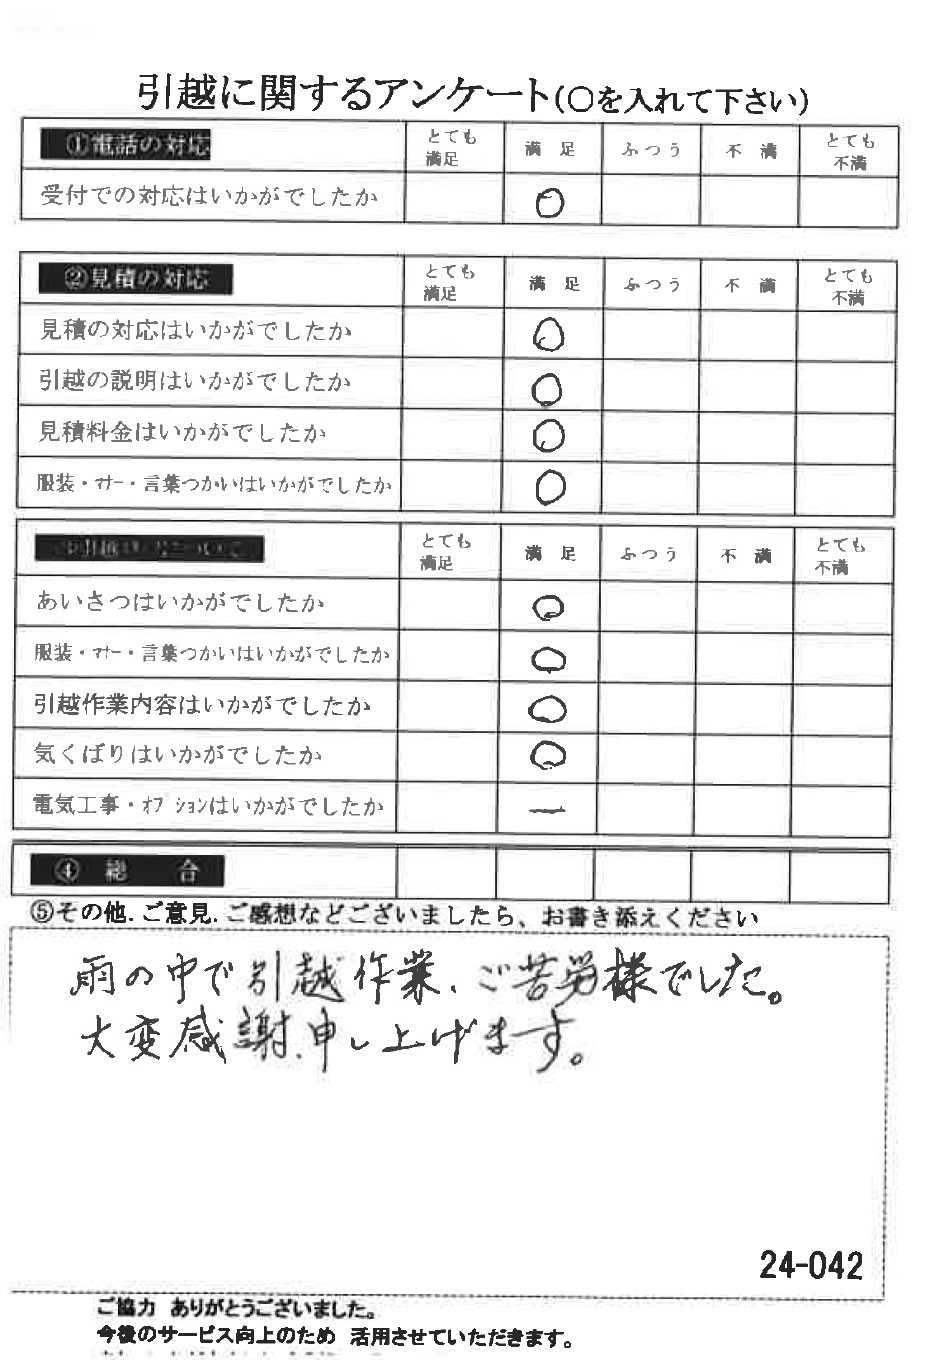 引越に関するアンケート(〇を入れて下さい)
①電話の対応 とても満足 満足 ふつう 不満 とても不満
受付での対応はいかがでしたか 〇
②見積の対応 とても満足 満足 ふつう 不満 とても不満
見積の対応はいかがでしたか 〇
引越の説明はいかがでしたか 〇
見積料金はいかがでしたか 〇
服装・マナー・言葉つかいはいかがでしたか 〇
とても満足 満足 ふつう 不満 とても不満
あいさつはいかがでしたか 〇
服装・マナー・言葉つかいはいかがでしたか 〇
引越作業内容はいかがでしたか 〇
気くばりはいかがでしたか 〇
電気工事・オプションはいかがでしたか ー
④ 総 合
⑤その他.ご意見.ご感想などございましたら、お書き添えください
雨の中で引越作業、ご苦労様でした。
大変感謝申し上げます。
24-042
ご協力 ありがとうございました。
今後のサービス向上のため 活用させていただきます。